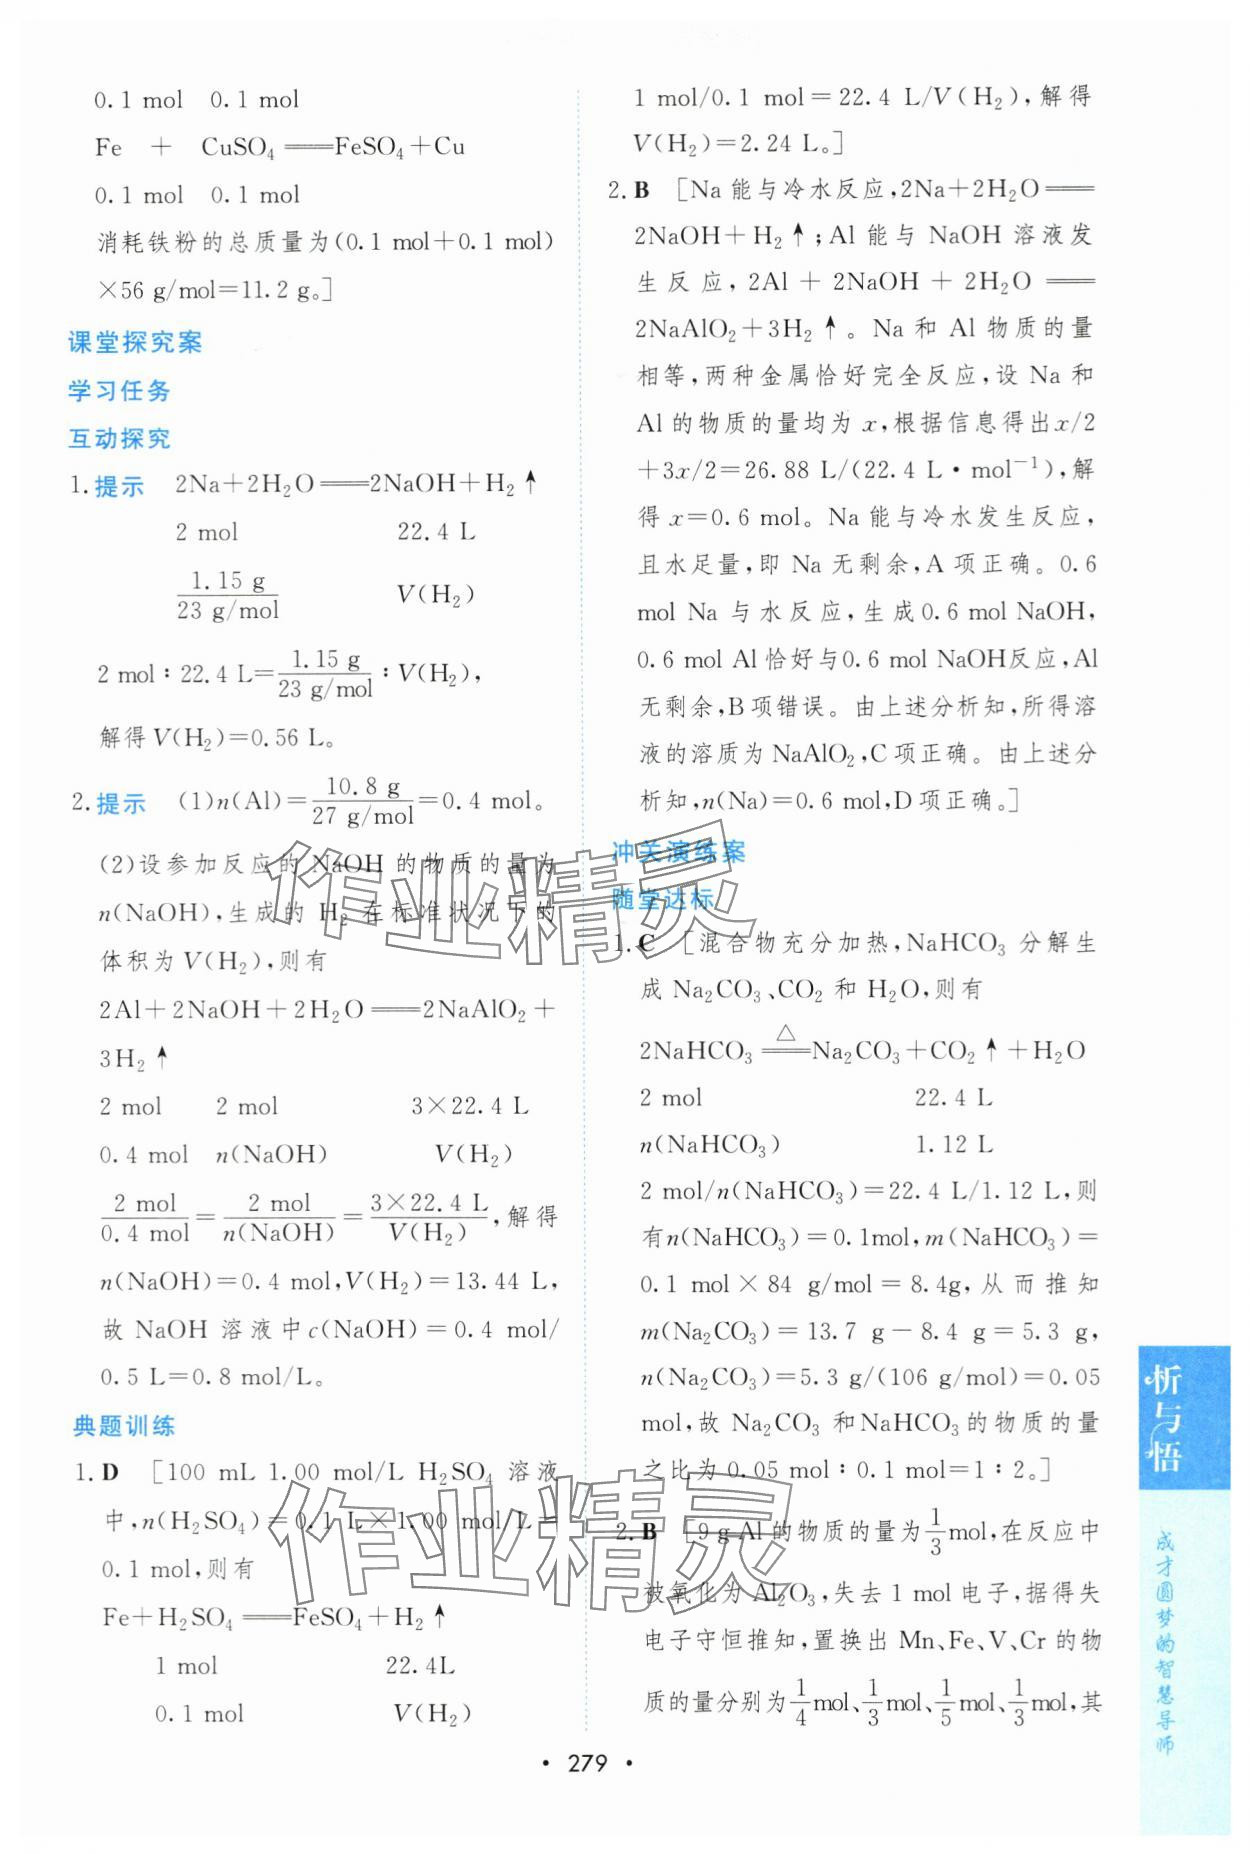 0.1 mol 0.1 mol
Fe + CuSO₄══FeSO₄+Cu
0.1 mol 0.1 mol
消耗铁粉的总质量为(0.1 mol+0.1 mol)
×56 g/mol=11.2 g。]
课堂探究案
学习任务
互动探究
1.提示 2Na+2H₂O══2NaOH+H₂↑
2 mol 22.4 L
1.15 g/23 g/mol V(H₂)
2 mol∶22.4 L=1.15 g/23 g/mol∶V(H₂),
解得V(H₂)=0.56 L。
2.提示 (1)n(Al)=10.8 g/27 g/mol=0.4 mol。
(2)设参加反应的 NaOH 的物质的量为
n(NaOH),生成的 H₂ 在标准状况下的
体积为 V(H₂),则有
2Al+2NaOH+2H₂O══2NaAlO₂+
3H₂↑
2 mol 2 mol 3×22.4 L
0.4 mol n(NaOH) V(H₂)
2 mol/0.4 mol=2 mol/n(NaOH)=3×22.4 L/V(H₂),解得
n(NaOH)=0.4 mol,V(H₂)=13.44 L,
故 NaOH 溶液中c(NaOH)=0.4 mol/
0.5 L=0.8 mol/L。
典题训练
1.D [100 mL 1.00 mol/L H₂SO₄ 溶液
中,n(H₂SO₄)=0.1 L×1.00 mol/L=
0.1 mol,则有
Fe+H₂SO₄══FeSO₄+H₂↑
1 mol 22.4L
0.1 mol V(H₂)
1 mol/0.1 mol=22.4 L/V(H₂),解得
V(H₂)=2.24 L。]
2.B [Na能与冷水反应,2Na+2H₂O══
2NaOH+H₂↑;Al能与 NaOH 溶液发
生反应,2Al+2NaOH+2H₂O══
2NaAlO₂+3H₂↑。Na 和 Al 物质的量
相等,两种金属恰好完全反应,设 Na 和
Al的物质的量均为 x,根据信息得出x/2
+3x/2=26.88 L/(22.4 L·mol⁻¹),解
得 x=0.6 mol。Na能与冷水发生反应,
且水足量,即 Na 无剩余,A 项正确。0.6
mol Na 与水反应,生成0.6 mol NaOH,
0.6 mol Al恰好与0.6 mol NaOH反应,Al
无剩余,B项错误。由上述分析知,所得溶
液的溶质为 NaAlO₂,C 项正确。由上述分
析知,n(Na)=0.6 mol,D项正确。]
冲关演练案
随堂达标
1.C [混合物充分加热,NaHCO₃ 分解生
成 Na₂CO₃、CO₂ 和 H₂O,则有
2NaHCO₃ △══ Na₂CO₃+CO₂↑+H₂O
2 mol 22.4 L
n(NaHCO₃) 1.12 L
2 mol/n(NaHCO₃)=22.4 L/1.12 L,则
有n(NaHCO₃)=0.1mol,m(NaHCO₃)=
0.1 mol×84 g/mol=8.4g,从而推知
m(Na₂CO₃)=13.7 g-8.4 g=5.3 g,
n(Na₂CO₃)=5.3 g/(106 g/mol)=0.05
mol,故 Na₂CO₃ 和NaHCO₃的物质的量
之比为 0.05 mol∶0.1 mol=1∶2。]
2.B [9 g Al的物质的量为1/3mol,在反应中
被氧化为Al₂O₃,失去 1 mol电子,据得失
电子守恒推知,置换出 Mn、Fe、V、Cr 的物
质的量分别为1/4mol、1/3mol、1/5mol、1/3mol,其
析与悟
成才圆梦的智慧导师
· 279 ·
作业精灵
作业精灵